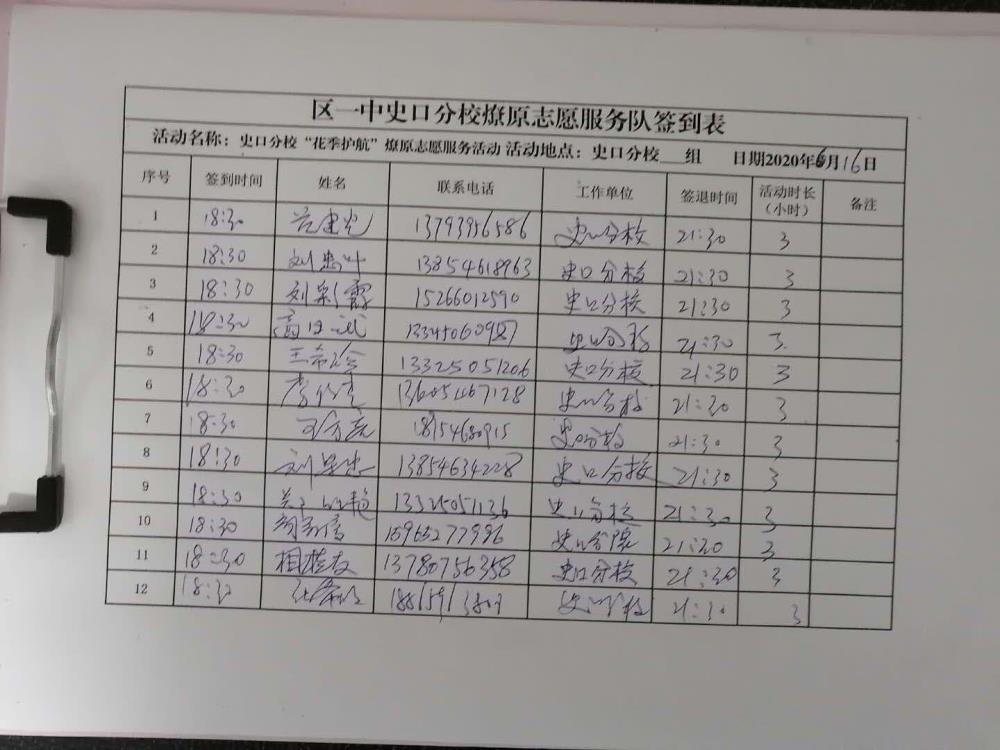 区一中史口分校燎原志愿服务队签到表
活动名称：史口分校“花季护航”燎原志愿服务活动 活动地点：史口分校 组 日期2020年6月16日
序号 签到时间 姓名 联系电话 工作单位 签退时间 活动时长（小时） 备注
1 18:30 13793956586 史口分校 21:30 3
2 18:30 刘忠叶 13854618963 史口分校 21:30 3
3 18:30 刘彩霞 15266012590 史口分校 21:30 3
4 18:30 史口分校 21:30 3
5 18:30 13325051206 史口分校 21:30 3
6 18:30 13605467128 史口分校 21:30 3
7 18:30 18154680915 史口分校 21:30 3
8 18:30 13854634228 史口分校 21:30 3
9 18:30 13325051136 史口分校 21:30 3
10 18:30 15965277996 史口分院 21:30 3
11 18:30 相桂友 13780756358 史口分校 21:30 3
12 18:30 史口分校 21:30 3